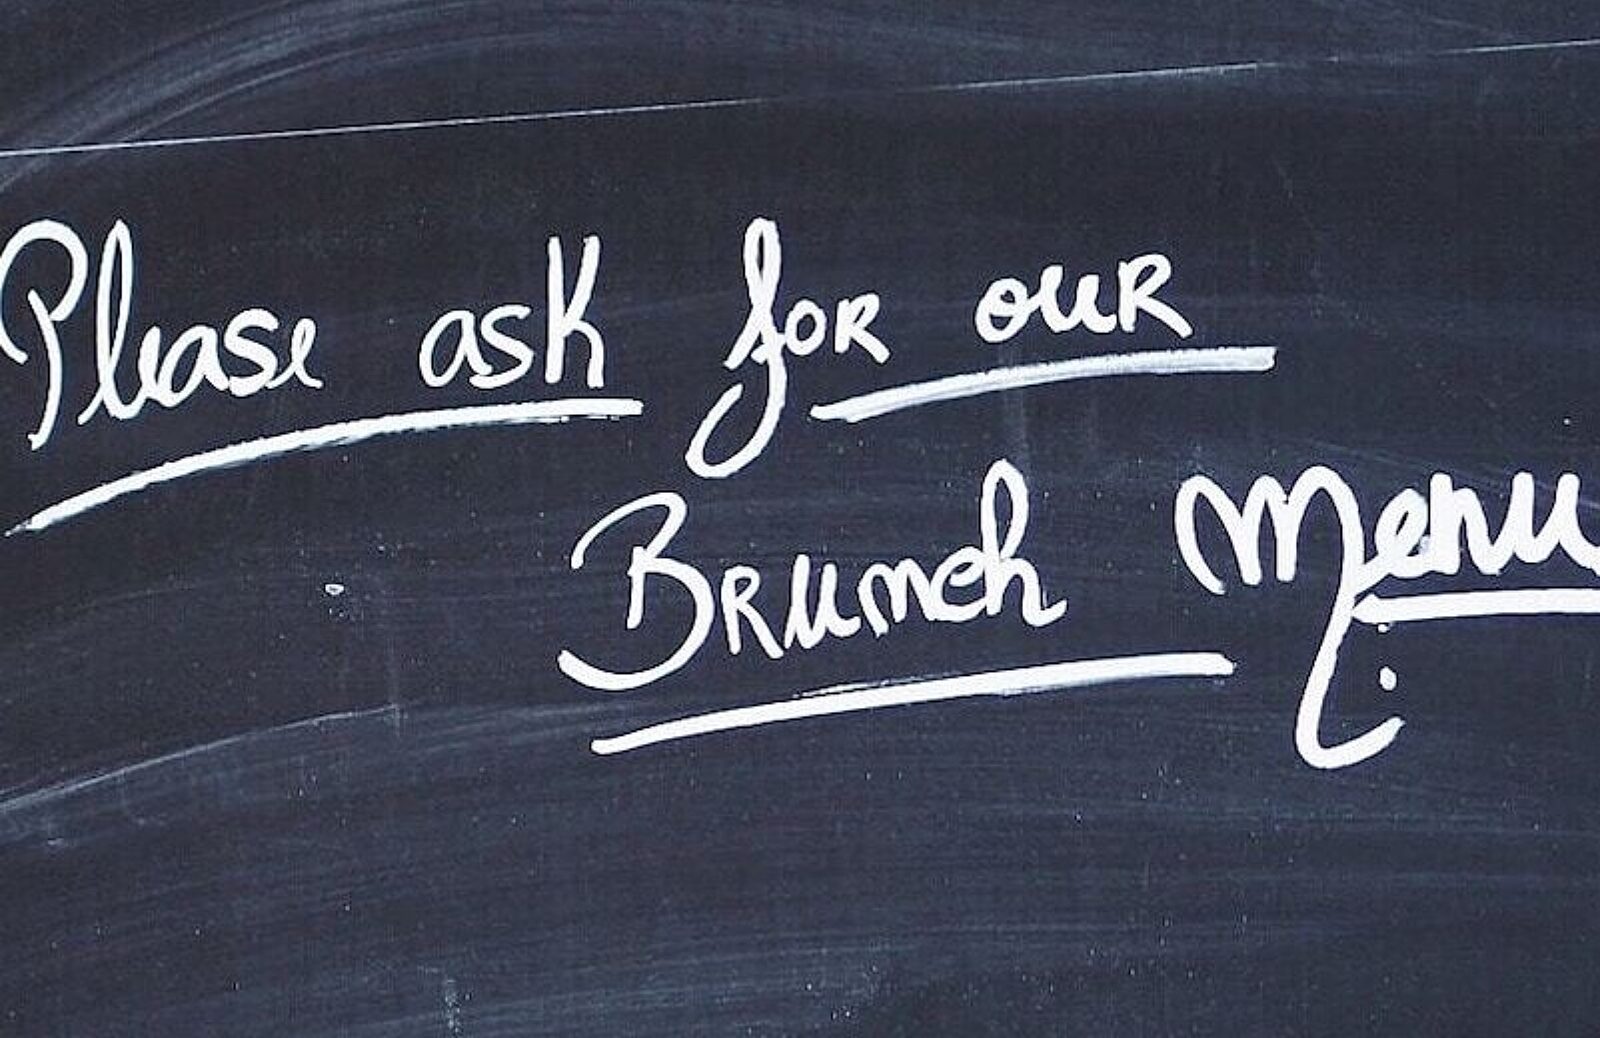 Please ask for our
Brunch Menu